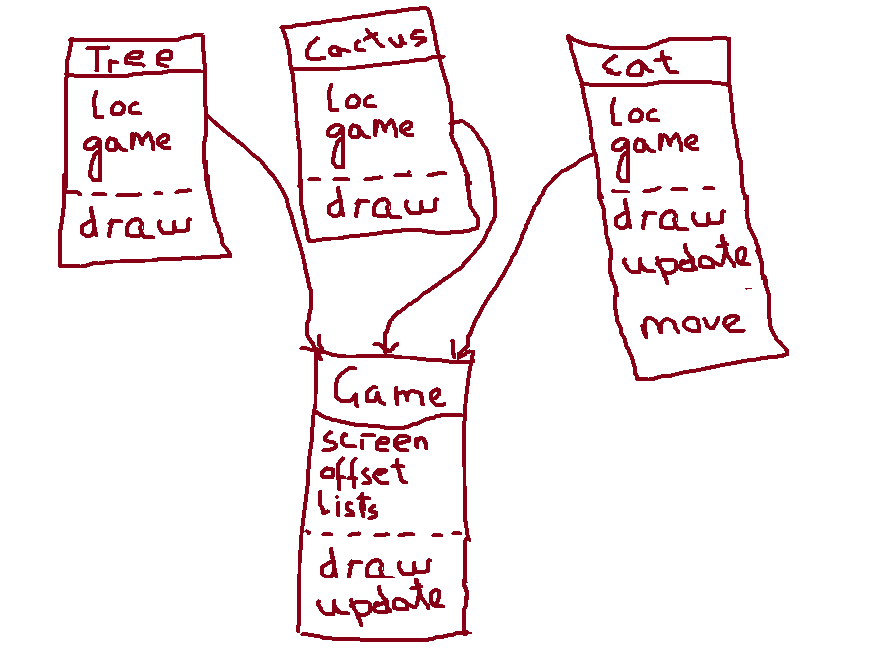 Tree
loc
game
draw
Cactus
loc
game
draw
cat
loc
game
draw
update
move
Game
screen
offset
lists
draw
update